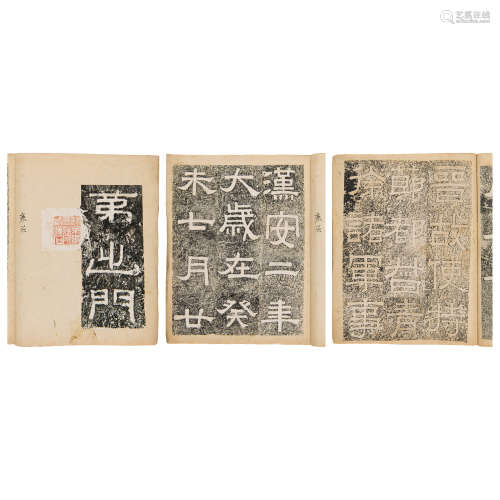 苐之門
漢安二年
大歲在癸
未七月廿
晉故使持
節都督青
徐諸軍事